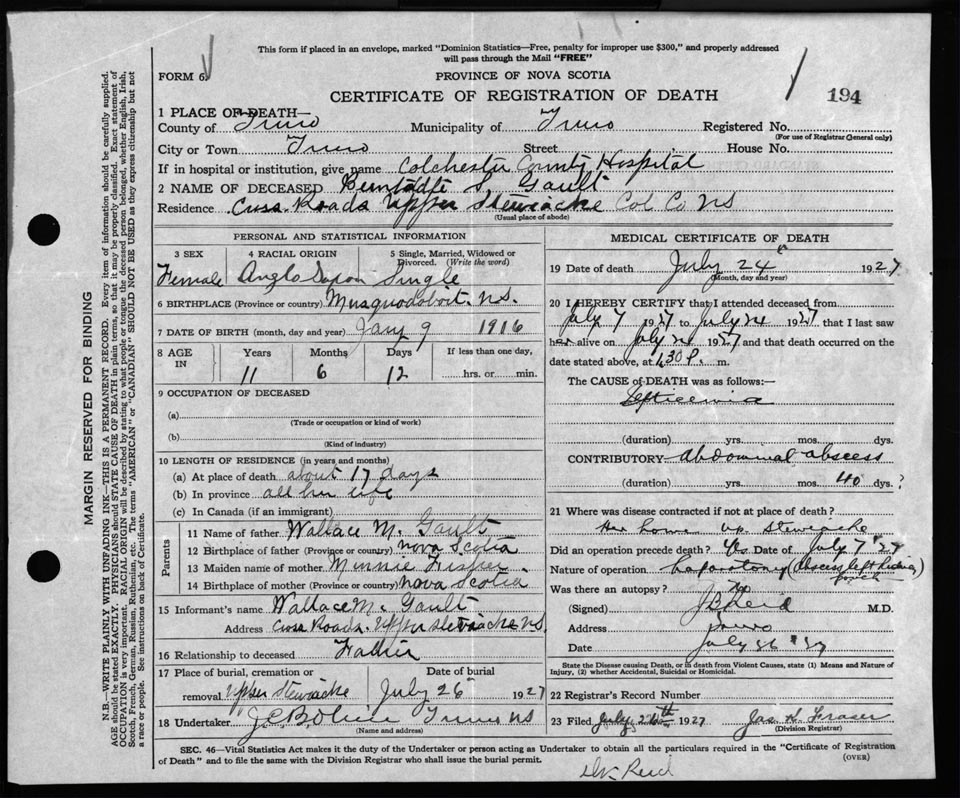 This form if placed in an envelope, marked "Dominion Statistics—Free, penalty for improper use $300," and properly addressed
will pass through the Mail "FREE"
FORM 6
PROVINCE OF NOVA SCOTIA
CERTIFICATE OF REGISTRATION OF DEATH
194
1 PLACE OF DEATH—
County of Truro Municipality of Truro Registered No.
(For use of Registrar General only)
City or Town Truro Street House No.
If in hospital or institution, give name Colchester County Hospital
2 NAME OF DECEASED S. Gault
Residence Cross Roads Upper Stewiacke Col Co NS
(Usual place of abode)
PERSONAL AND STATISTICAL INFORMATION
3 SEX 4 RACIAL ORIGIN 5 Single, Married, Widowed or
Divorced. (Write the word)
Female Anglo Saxon Single
6 BIRTHPLACE (Province or country) Musquodoboit. N.S.
7 DATE OF BIRTH (month, day and year) Jany 9 1916
8 AGE IN Years Months Days If less than one day,
11 6 12 hrs. or min.
9 OCCUPATION OF DECEASED
(a)
(Trade or occupation or kind of work)
(b)
(Kind of industry)
10 LENGTH OF RESIDENCE (in years and months)
(a) At place of death about 17 days
(b) In province all her life
(c) In Canada (if an immigrant)
Parents
11 Name of father Wallace M. Gault
12 Birthplace of father (Province or country) Nova Scotia
13 Maiden name of mother Minnie
14 Birthplace of mother (Province or country) Nova Scotia
15 Informant's name Wallace M. Gault
Address Cross Roads. Upper Stewiacke N.S.
16 Relationship to deceased Father
17 Place of burial, cremation or Date of burial
removal Upper Stewiacke July 26 1927
18 Undertaker Truro NS
(Name and address)
MEDICAL CERTIFICATE OF DEATH
19 Date of death July 24 1927
(Month, day and year)
20 I HEREBY CERTIFY that I attended deceased from
July 7 1927 to July 24 1927 that I last saw
her alive on July 24 1927 and that death occurred on the
date stated above, at 4.30 P. m.
The CAUSE OF DEATH was as follows:—
Septicemia
(duration) yrs. mos. dys.
CONTRIBUTORY abdominal abscess
(duration) yrs. mos. 40 dys. ?
21 Where was disease contracted if not at place of death?
Her home Up. Stewiacke
Did an operation precede death? Yes Date of July 7 27
Nature of operation Laparotomy (Abscess left Kidney
pouch)
Was there an autopsy? No
(Signed) J B Reid M.D.
Address Truro
Date July 26 27
State the Disease causing Death, or in death from Violent Causes, state (1) Means and Nature of
Injury, (2) whether Accidental, Suicidal or Homicidal.
22 Registrar's Record Number
23 Filed July 26th 1927 Jas. H. Fraser
(Division Registrar)
SEC. 46—Vital Statistics Act makes it the duty of the Undertaker or person acting as Undertaker to obtain all the particulars required in the "Certificate of Registration
of Death" and to file the same with the Division Registrar who shall issue the burial permit. (OVER)
Dr. Reid
MARGIN RESERVED FOR BINDING
N.B.—WRITE PLAINLY WITH UNFADING INK—THIS IS A PERMANENT RECORD. Every item of information should be carefully supplied.
AGE should be stated EXACTLY. PHYSICIANS should STATE CAUSE OF DEATH in plain terms, so that it may be properly classified. Exact statement of
OCCUPATION is very important. RACIAL ORIGIN will be described by stating to what people or tongue the deceased person belonged, whether English, Irish,
Scotch, French, German, Russian, Ruthenian, etc. The terms "AMERICAN" or "CANADIAN" SHOULD NOT BE USED as they express citizenship but not
a race or people. See instructions on back of Certificate.